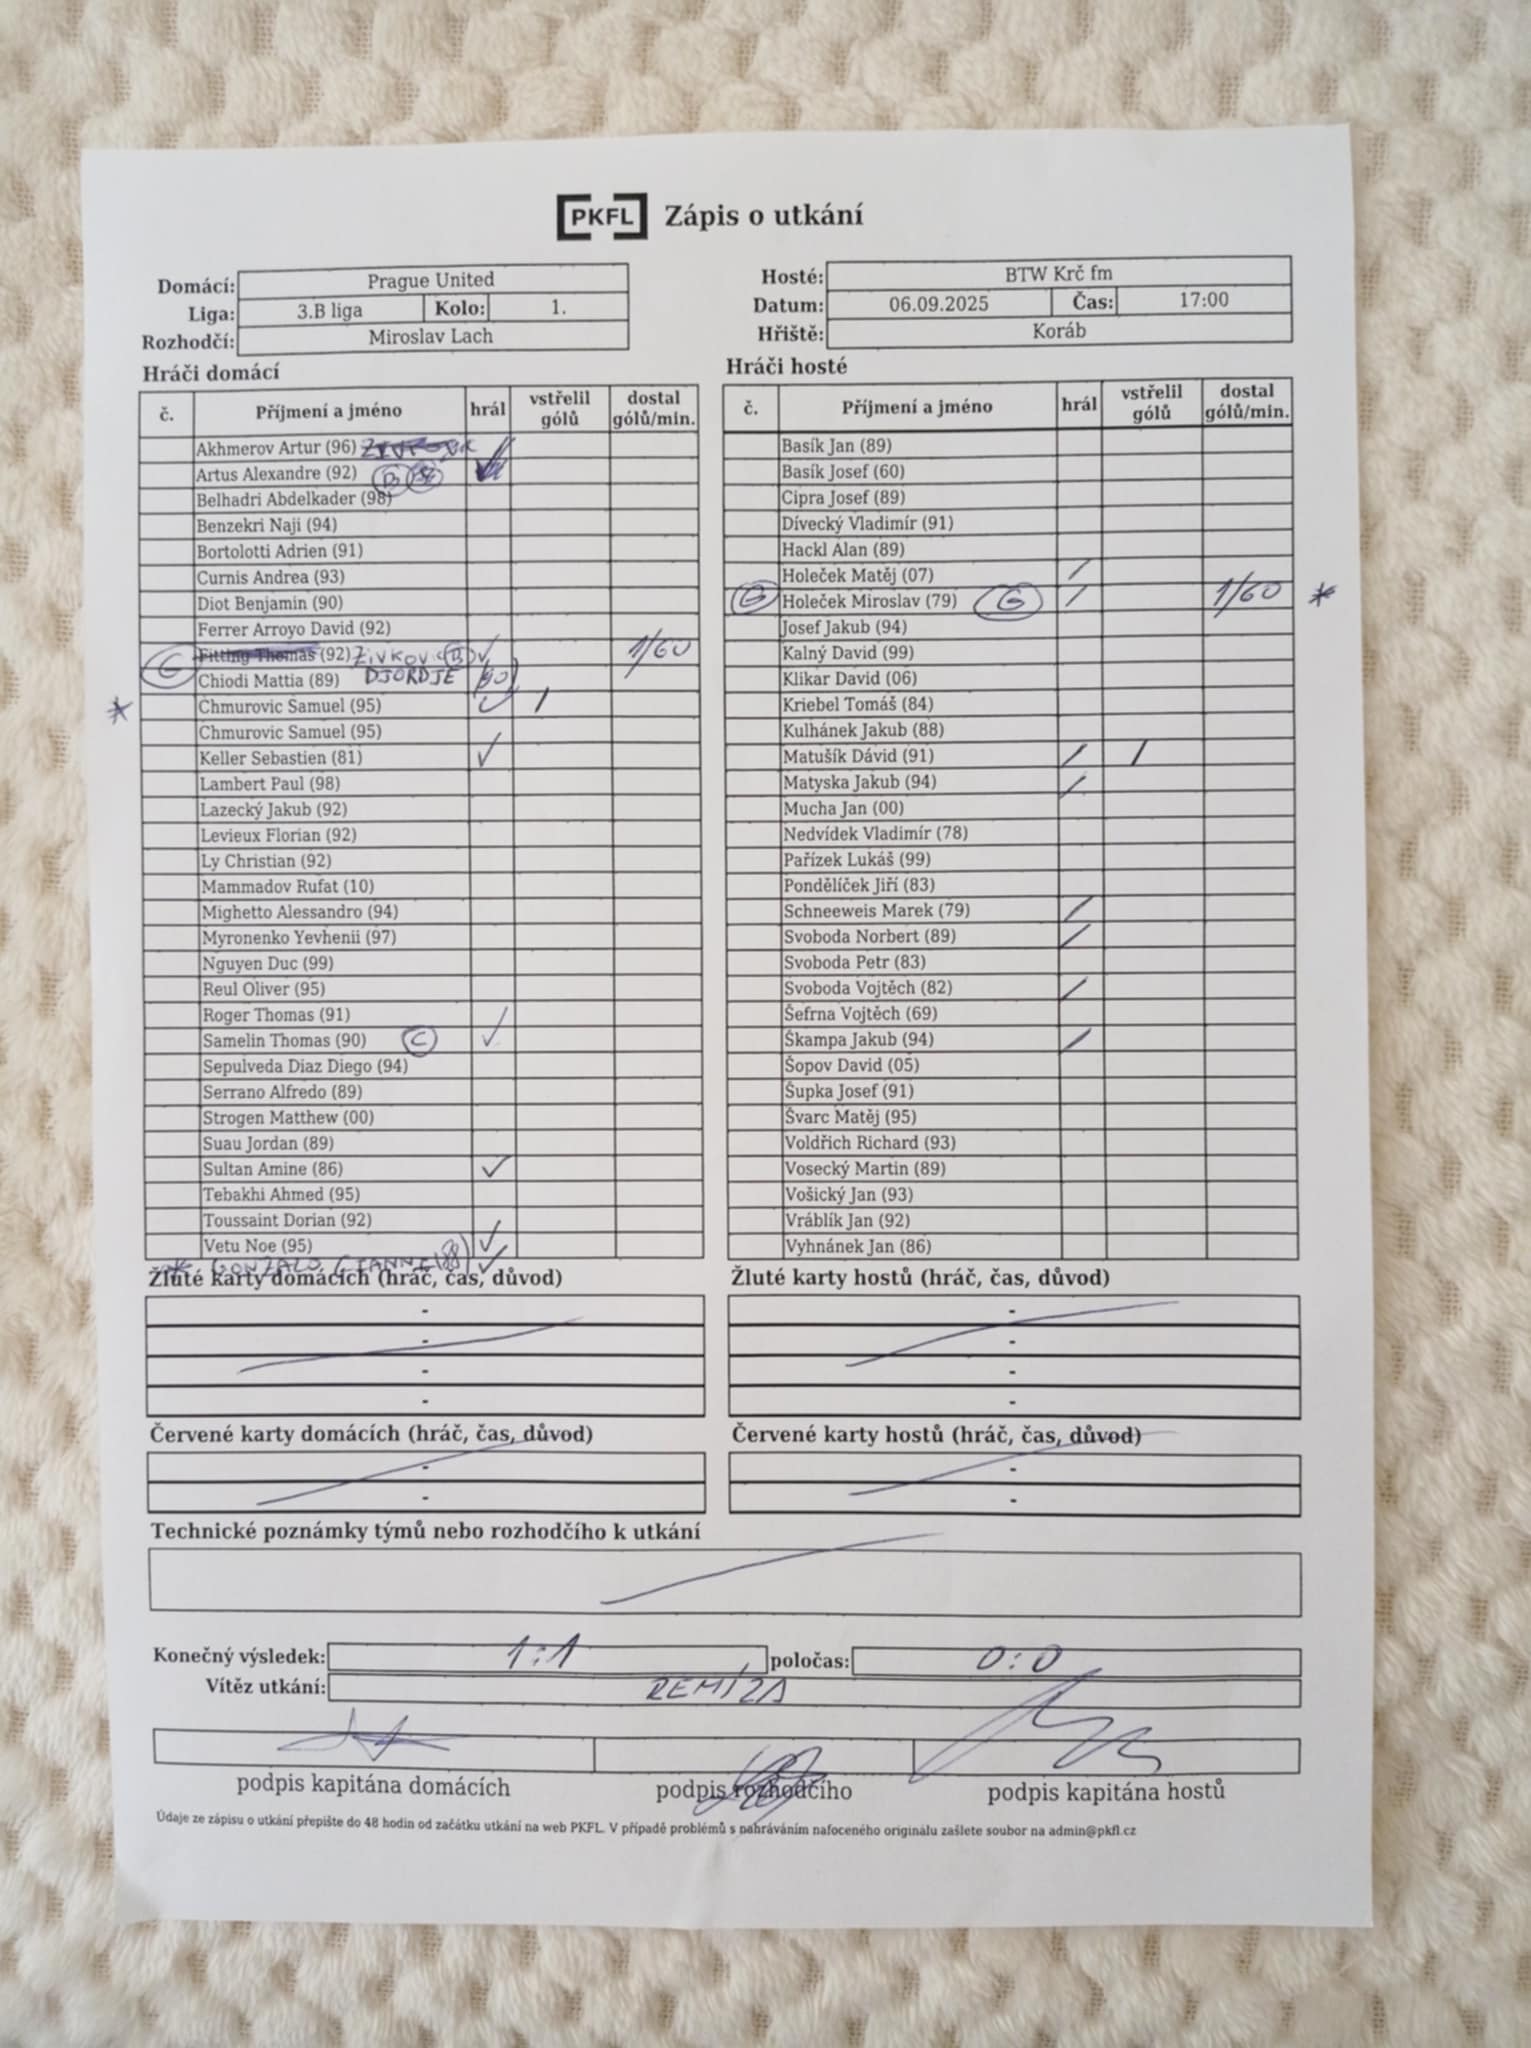 PKFL Zápis o utkání
Domácí: Prague United
Liga: 3.B liga Kolo: 1.
Rozhodčí: Miroslav Lach
Hosté: BTW Krč fm
Datum: 06.09.2025 Čas: 17:00
Hřiště: Koráb
Hráči domácí
č. Příjmení a jméno hrál vstřelil gólů dostal gólů/min.
Akhmerov Artur (96)
Artus Alexandre (92)
Belhadri Abdelkader (98)
Benzekri Naji (94)
Bortolotti Adrien (91)
Curnis Andrea (93)
Diot Benjamin (90)
Ferrer Arroyo David (92)
G Fitting Thomas (92) ZIVKOVIC B ✓ 1/60
Chiodi Mattia (89) DJORDJE
* Chmurovic Samuel (95) ✓ /
Chmurovic Samuel (95)
Keller Sebastien (81) ✓
Lambert Paul (98)
Lazecký Jakub (92)
Levieux Florian (92)
Ly Christian (92)
Mammadov Rufat (10)
Mighetto Alessandro (94)
Myronenko Yevhenii (97)
Nguyen Duc (99)
Reul Oliver (95)
Roger Thomas (91)
Samelin Thomas (90) C ✓
Sepulveda Diaz Diego (94)
Serrano Alfredo (89)
Strogen Matthew (00)
Suau Jordan (89)
Sultan Amine (86) ✓
Tebakhi Ahmed (95)
Toussaint Dorian (92)
Vetu Noe (95) ✓
* GONZALO GIANNI (88) ✓
Hráči hosté
č. Příjmení a jméno hrál vstřelil gólů dostal gólů/min.
Basík Jan (89)
Basík Josef (60)
Cipra Josef (89)
Dívecký Vladimír (91)
Hackl Alan (89)
Holeček Matěj (07) /
G Holeček Miroslav (79) G / 1/60 *
Josef Jakub (94)
Kalný David (99)
Klikar David (06)
Kriebel Tomáš (84)
Kulhánek Jakub (88)
Matušík Dávid (91) / /
Matyska Jakub (94) /
Mucha Jan (00)
Nedvídek Vladimír (78)
Pařízek Lukáš (99)
Pondělíček Jiří (83)
Schneeweis Marek (79) /
Svoboda Norbert (89) /
Svoboda Petr (83)
Svoboda Vojtěch (82) /
Šefrna Vojtěch (69)
Škampa Jakub (94) /
Šopov David (05)
Šupka Josef (91)
Švarc Matěj (95)
Voldřich Richard (93)
Vosecký Martin (89)
Vošický Jan (93)
Vráblík Jan (92)
Vyhnánek Jan (86)
Žluté karty domácích (hráč, čas, důvod)
-
-
-
-
Žluté karty hostů (hráč, čas, důvod)
-
-
-
-
Červené karty domácích (hráč, čas, důvod)
-
-
Červené karty hostů (hráč, čas, důvod)
-
-
Technické poznámky týmů nebo rozhodčího k utkání
Konečný výsledek: 1:1 poločas: 0:0
Vítěz utkání: REMIZA
podpis kapitána domácích podpis rozhodčího podpis kapitána hostů
Údaje ze zápisu o utkání přepište do 48 hodin od začátku utkání na web PKFL. V případě problémů s nahráváním nafoceného originálu zašlete soubor na admin@pkfl.cz